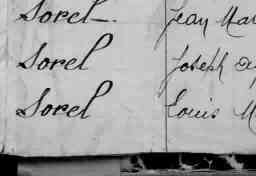 Sorel Jean Ma
Sorel Joseph
Sorel Louis M